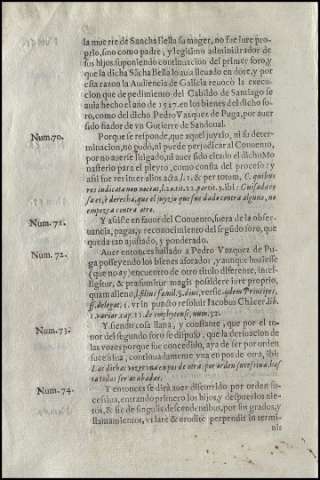 la muerte de Sancha Bella su muger, no fue iure pro-
prio, sino como padre, y legitimo administrador de
sus hijos, suponiendo continuacion del primer foro, y
que la dicha Sãcha Bella lo auia lleuado en dote, y por
esta razon la Audiencia de Galicia reuocò la execu-
cion que de pedimento del Cabildo de Santiago se
auia hecho el año de 1527. en los bienes del dicho fo-
ro, como del dicho Pedro Vazquez de Puga, por auer
sido fiador de vn Gutierre de Sandoual.
Num. 70. Porque se responde, que aquel juyzio, ni su deter-
minacion, no pudo, ni puede perjudicar al Conuento,
por no auerse litigado, ni auer sido citado el dicho Mo
nasterio para el pleyto, como consta del processo; y
assi fue res inter alios acta, l. 1. & per totum, C. quibus
res iudicata non noceat, l. 20. tit. 22. partit. 3. ibi: Guisada cosa
es, è derecho, que el juyzio que fue dado contra alguno, no
empezca contra otro.
Num. 71. Y assiste en fauor del Conuento, fuera de la obser-
uancia, pagas, y reconocimiento del segũdo foro, que
queda tan ajustado, y ponderado.
Num. 72. Auer entonces hallado a Pedro Vazquez de Pu-
ga posseyendo los bienes aforados, y aunque huuiesse
(que no ay) encuentro de otro titulo diferente, intel-
ligitur, & præsumitur magis possidere iure proprio,
quam alieno,
Num. 73. Y siendo cosa llana, y constante, que por el te-
nor del segundo foro se dispuso, que la deriuacion de
las vozes porque fue concedido, aya de ser por orden
sucessiua, continuadamente vna en pos de otra, ibi:
Las dichas vozes vna en pos de otra, por orden sucessiua, has
ta todas ser acabadas.
Num. 74. Y entonces se dirà auer discurrido por orden su-
cessiua, entrando primero los hijos, y despues los nie-
tos, & sic de singulis descendentibus, por sus grados, y
llamamientos, vt late & erudite perpendit in termi-
nis